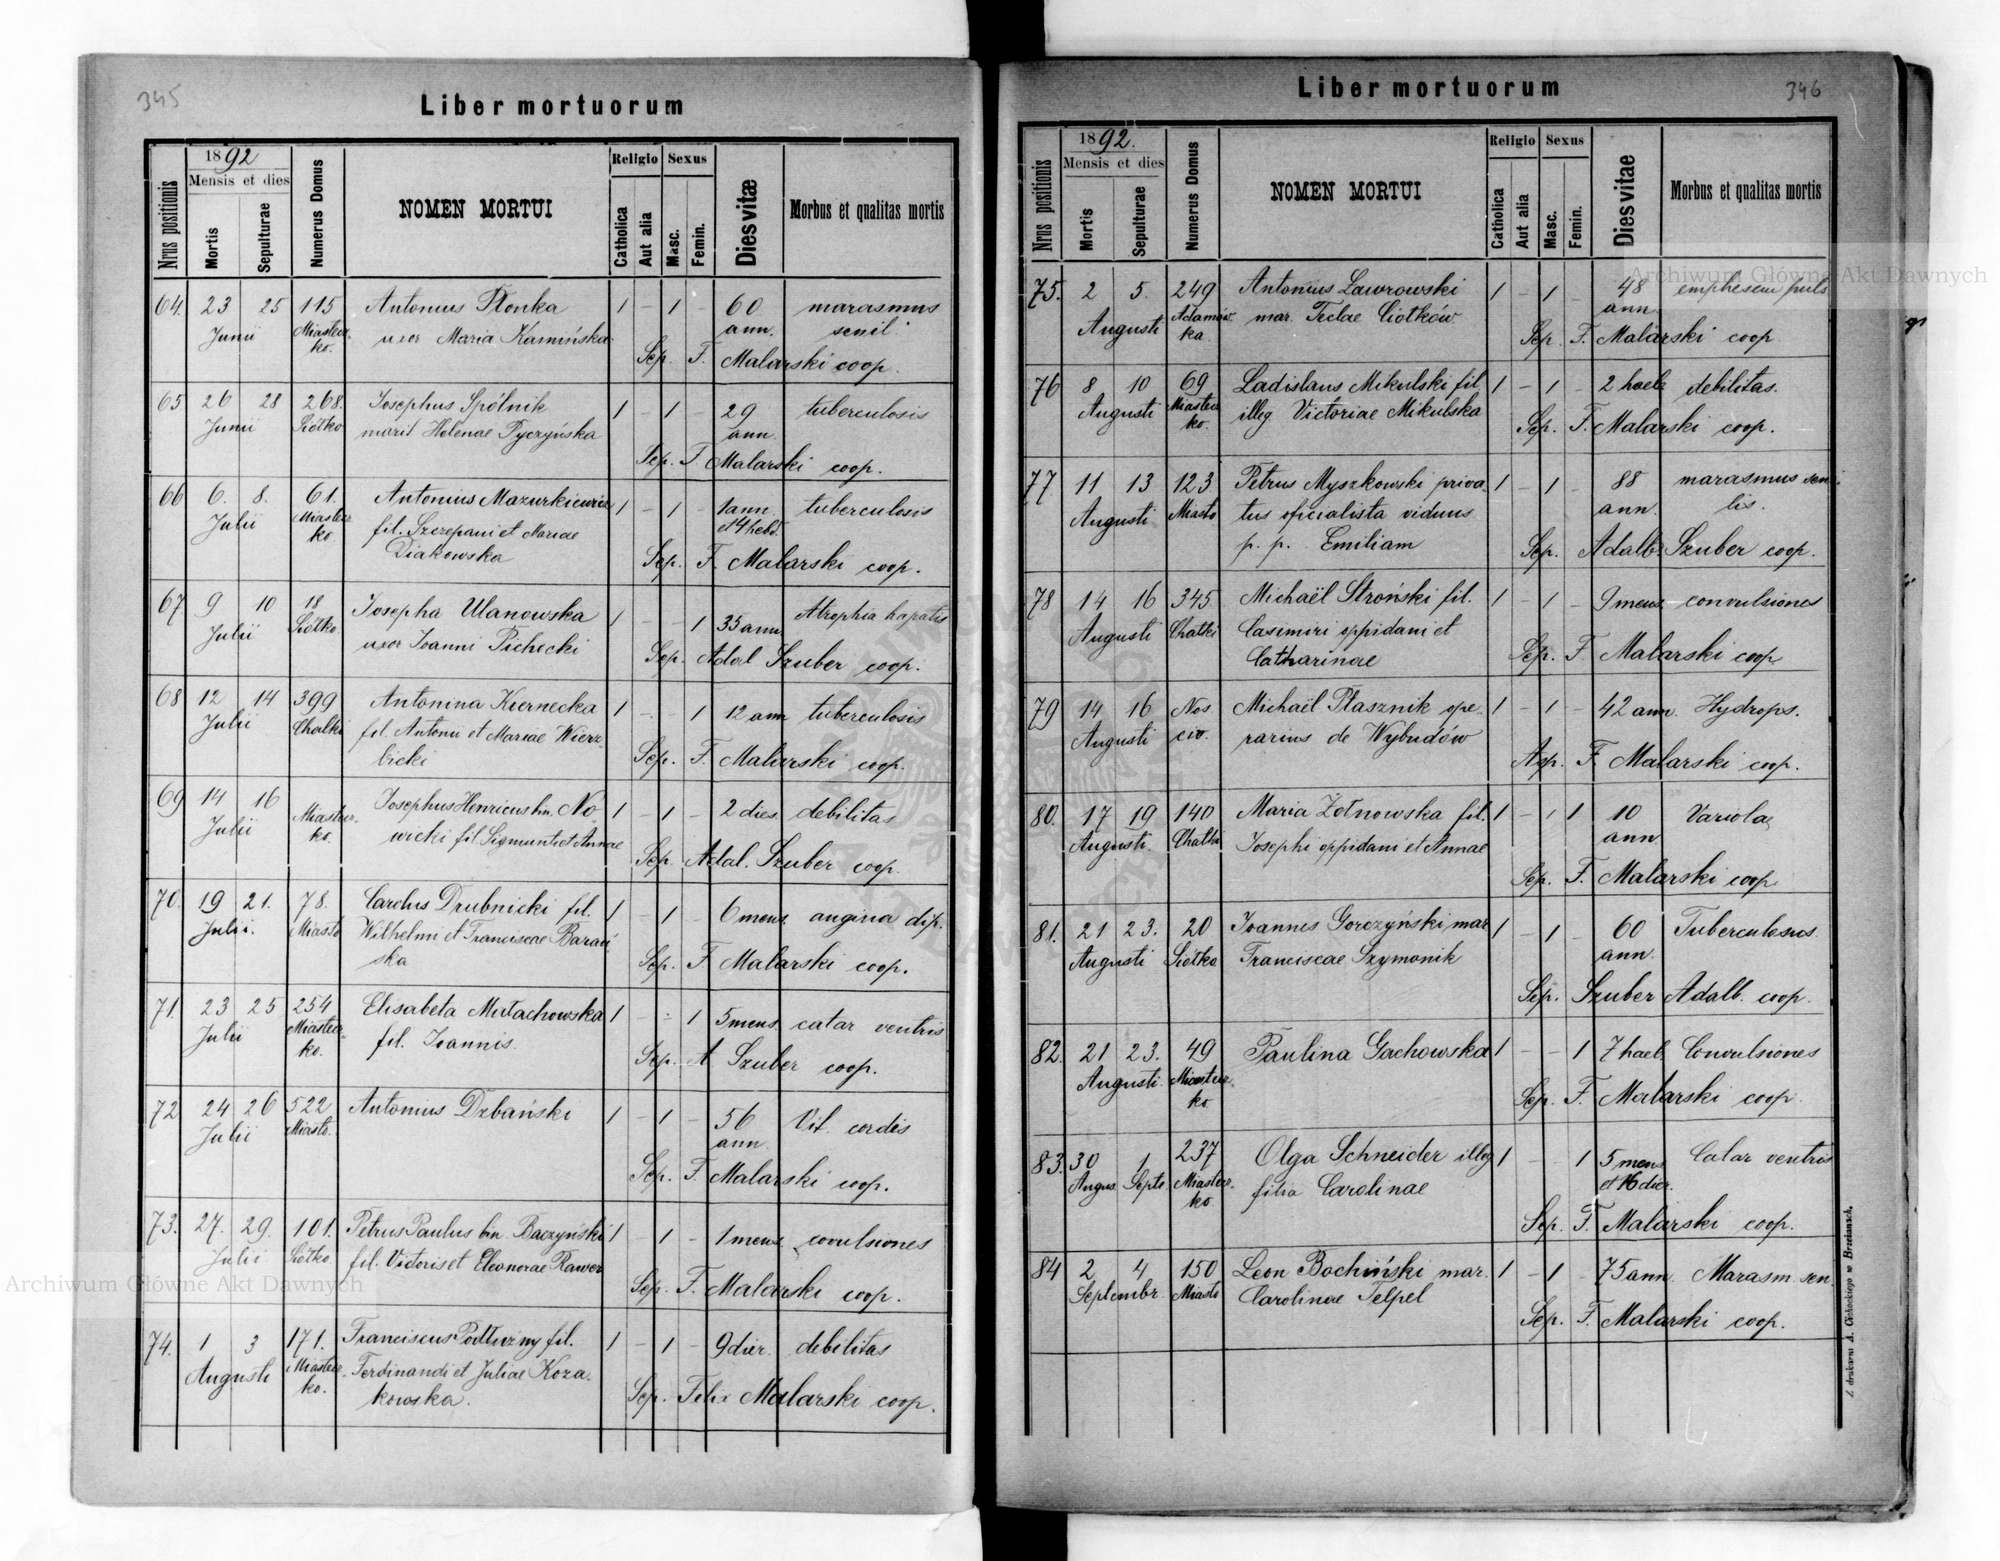 345
Liber mortuorum
Nrus positionis
1892
Mensis et dies
Mortis
Sepulturae
Numerus Domus
NOMEN MORTUI
Religio
Catholica
Aut alia
Sexus
Masc.
Femin.
Dies vitæ
Morbus et qualitas mortis
64. 23 25 115 Antonius Płonka 1 – 1 60 marasmus
Junii Miastecz- uxor Maria Kamińska ann. senil
ko. Sep. F. Malarski coop.
65 26 28 268. Josephus Spólnik 1 – 1 – 29 tuberculosis
Junii Siółko marit. Helenae Pyczyńska ann.
Sep. F Malarski coop.
66 6. 8. 61. Antonius Mazurkiewicz 1 – 1 – 1 ann. tuberculosis
Julii Miastecz fil. Szczepani et Mariae et 14 hebd.
ko Diakowska Sep. F. Malarski coop.
67 9 10 18 Josepha Ulanowska 1 – 1 35 ann. Atrophia hapatis
Julii Siółko uxor Joanni Pichecki
Sep. Adal Szuber coop.
68 12 14 399 Antonina Kiernecka 1 – 1 12 ann tuberculosis
Julii Chatki fil. Antonii et Mariae Wierz-
bicki Sep. F. Malarski coop.
69 14 16 Josephus Henricus bin. No 1 – 1 – 2 dies debilitas
Julii Miastecz- wicki fil. Sigmunti et Annae
ko. Sep. Adal. Szuber coop.
70. 19 21. 78. Carolus Drubnicki fil. 1 – 1 – 6 mens. angina dip.
Julii. Miasto Wilhelmi et Franciscae Barań
ska Sep. F Malarski coop.
71. 23 25 254 Elisabeta Małachowska 1 – 1 5 mens. catar ventris
Julii Miastecz- fil. Joannis.
ko. Sep. A Szuber coop.
72 24 26 522 Antonius Drbański 1 – 1 – 56 Vit. cordis
Julii Miasto. ann.
Sep. F. Malarski coop.
73. 27. 29. 101. Petrus Paulus bin. Baczyński 1 – 1 – 1 mens. covulsiones
Julii Siółko. fil. Victoris et Eleonorae Rawser
Sep. F. Malarski coop.
74. 1 3 171. Franciscus Podłużny fil. 1 – 1 – 9 dier. debilitas
Augusti Miastecz- Ferdinandi et Juliae Koza-
ko. kowska. Sep. Felix Malarski coop.
346
Liber mortuorum
Nrus positionis
1892.
Mensis et dies
Mortis
Sepulturae
Numerus Domus
NOMEN MORTUI
Religio
Catholica
Aut alia
Sexus
Masc.
Femin.
Dies vitae
Morbus et qualitas mortis
75. 2 5. 249 Antonius Lawrowski 1 – 1 – 48 emphesem puls
Augusti Adamów- mar. Teclae Ciotków ann.
ka. Sep. F. Malarski coop.
76 8 10 69 Ladislaus Mikulski fil. 1 – 1 – 2 haeb. debilitas.
Augusti Miastecz illeg. Victoriae Mikulska
ko. Sep. F. Malarski coop.
77 11 13 123 Petrus Myszkowski priva- 1 – 1 88 marasmus sen
Augusti Miasto tus oficialista viduus ann. lis.
p. p. Emiliam Sep. Adalb. Szuber coop.
78 14 16 345 Michaël Stroński fil. 1 – 1 – 9 mens. convulsiones
Augusti Chatki Casimiri oppidani et
Catharinae Sep. F. Malarski coop
79 14 16 Nos Michaël Ptasznik ope- 1 – 1 – 42 ann. Hydrops.
Augusti cio. rarius de Wybudów
Asp. F Malarski coop.
80. 17 19 140 Maria Żołnowska fil. 1 – 1 10 Variola
Augusti. Chatki Josephi oppidani et Annae ann
Sep. F. Malarski coop
81. 21 23. 20 Joannes Gorczyński mar 1 – 1 – 60 Tuberculosus
Augusti Siółko Franciscae Szymonik ann.
Sep. Szuber Adalb. coop.
82. 21 23. 49 Paulina Gachowska 1 – – 1 7 haeb. Convulsiones
Augusti. Miastecz-
ko Sep. F. Malarski coop
83. 30 1 237 Olga Schneider illeg 1 – 1 5 mens Catar ventris
Augus. Septe. Miastecz- filia Carolinae et 16 dier.
ko Sep. F. Malarski coop.
84 2 4 150 Leon Bochiński mar. 1 – 1 – 75 ann. Marasm. sen.
Septembr. Miasto Carolinae Telpel
Sep. F. Malarski coop.
Z drukarni A. Cieskockiego w Brzeżanach.
Archiwum Główne Akt Dawnych
Archiwum Główne Akt Dawnych